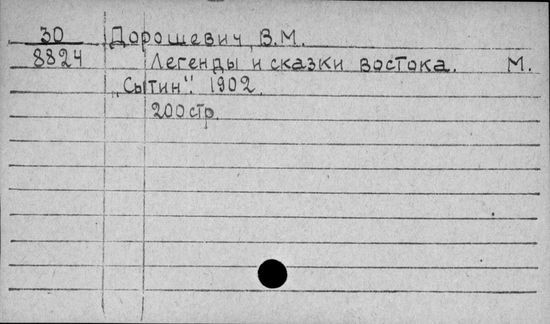 30 Дорошевич, В.М.
8824 Легенды и сказки востока. М.
„Сытин". 1902.
200стр.